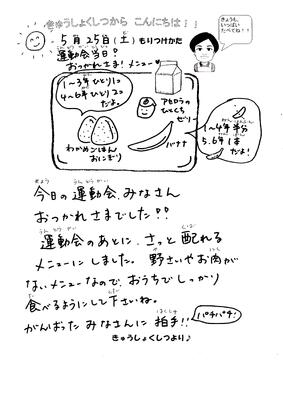 きゅうしょくしつから こんにちは!!
5月25日(土) もりつけかた
きょうも、
いっぱい
たべてね!!
運動会当日!
おつかれさま! メニュー♥
1~3年ひとり1コ
4~6年ひとり2コ
だよ。
アセロラの
ひとくち
ゼリー
わかめごはん
おにぎり
バナナ
1~4年半分
5.6年1本
だよ!
今日の運動会、みなさん
おつかれさまでした!!
運動会のあとに、さっと配れる
メニューにしました。野さいやお肉が
ないメニューなので、おうちでしっかり
食べるようにして下さいね。
がんばったみなさんに拍手!!
パチパチ!
きゅうしょくしつより♪